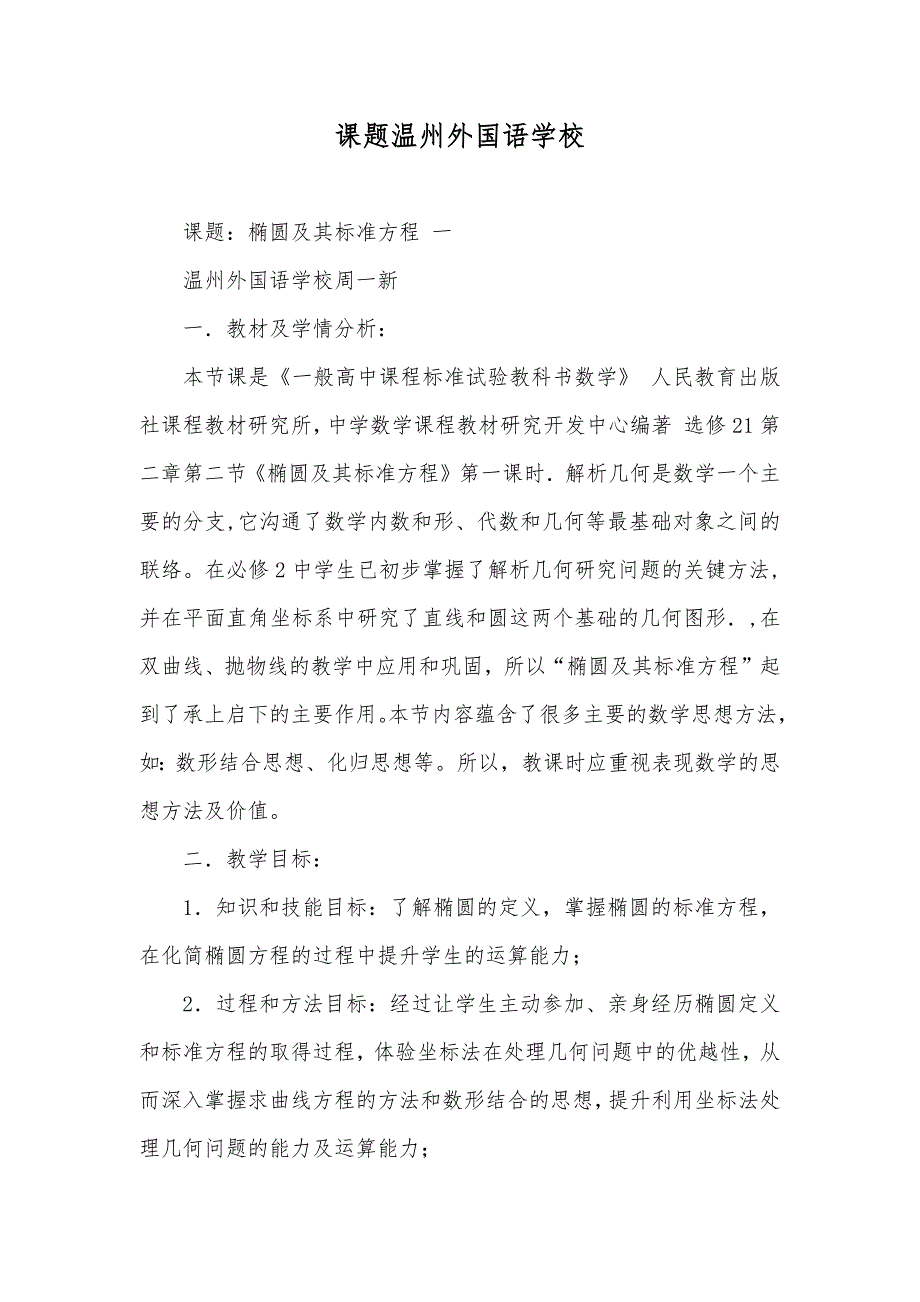 课题温州外国语学校
课题：椭圆及其标准方程 一
温州外国语学校周一新
一．教材及学情分析：
本节课是《一般高中课程标准试验教科书数学》 人民教育出版
社课程教材研究所，中学数学课程教材研究开发中心编著 选修 21 第
二章第二节《椭圆及其标准方程》第一课时．解析几何是数学一个主
要的分支，它沟通了数学内数和形、代数和几何等最基础对象之间的
联络。在必修 2 中学生已初步掌握了解析几何研究问题的关键方法，
并在平面直角坐标系中研究了直线和圆这两个基础的几何图形．,在
双曲线、抛物线的教学中应用和巩固，所以“椭圆及其标准方程”起
到了承上启下的主要作用。本节内容蕴含了很多主要的数学思想方法，
如：数形结合思想、化归思想等。所以，教课时应重视表现数学的思
想方法及价值。
二．教学目标：
1．知识和技能目标：了解椭圆的定义，掌握椭圆的标准方程，
在化简椭圆方程的过程中提升学生的运算能力；
2．过程和方法目标：经过让学生主动参加、亲身经历椭圆定义
和标准方程的取得过程，体验坐标法在处理几何问题中的优越性，从
而深入掌握求曲线方程的方法和数形结合的思想，提升利用坐标法处
理几何问题的能力及运算能力；